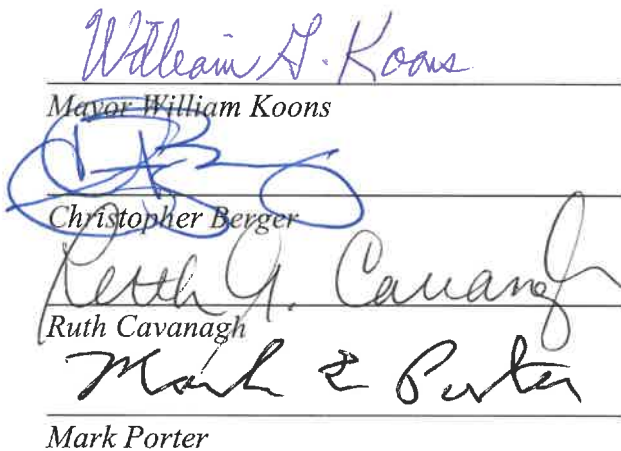 William G. Koons
Mayor William Koons
Christopher Berger
Ruth G. Cavanagh
Ruth Cavanagh
Mark E Porter
Mark Porter